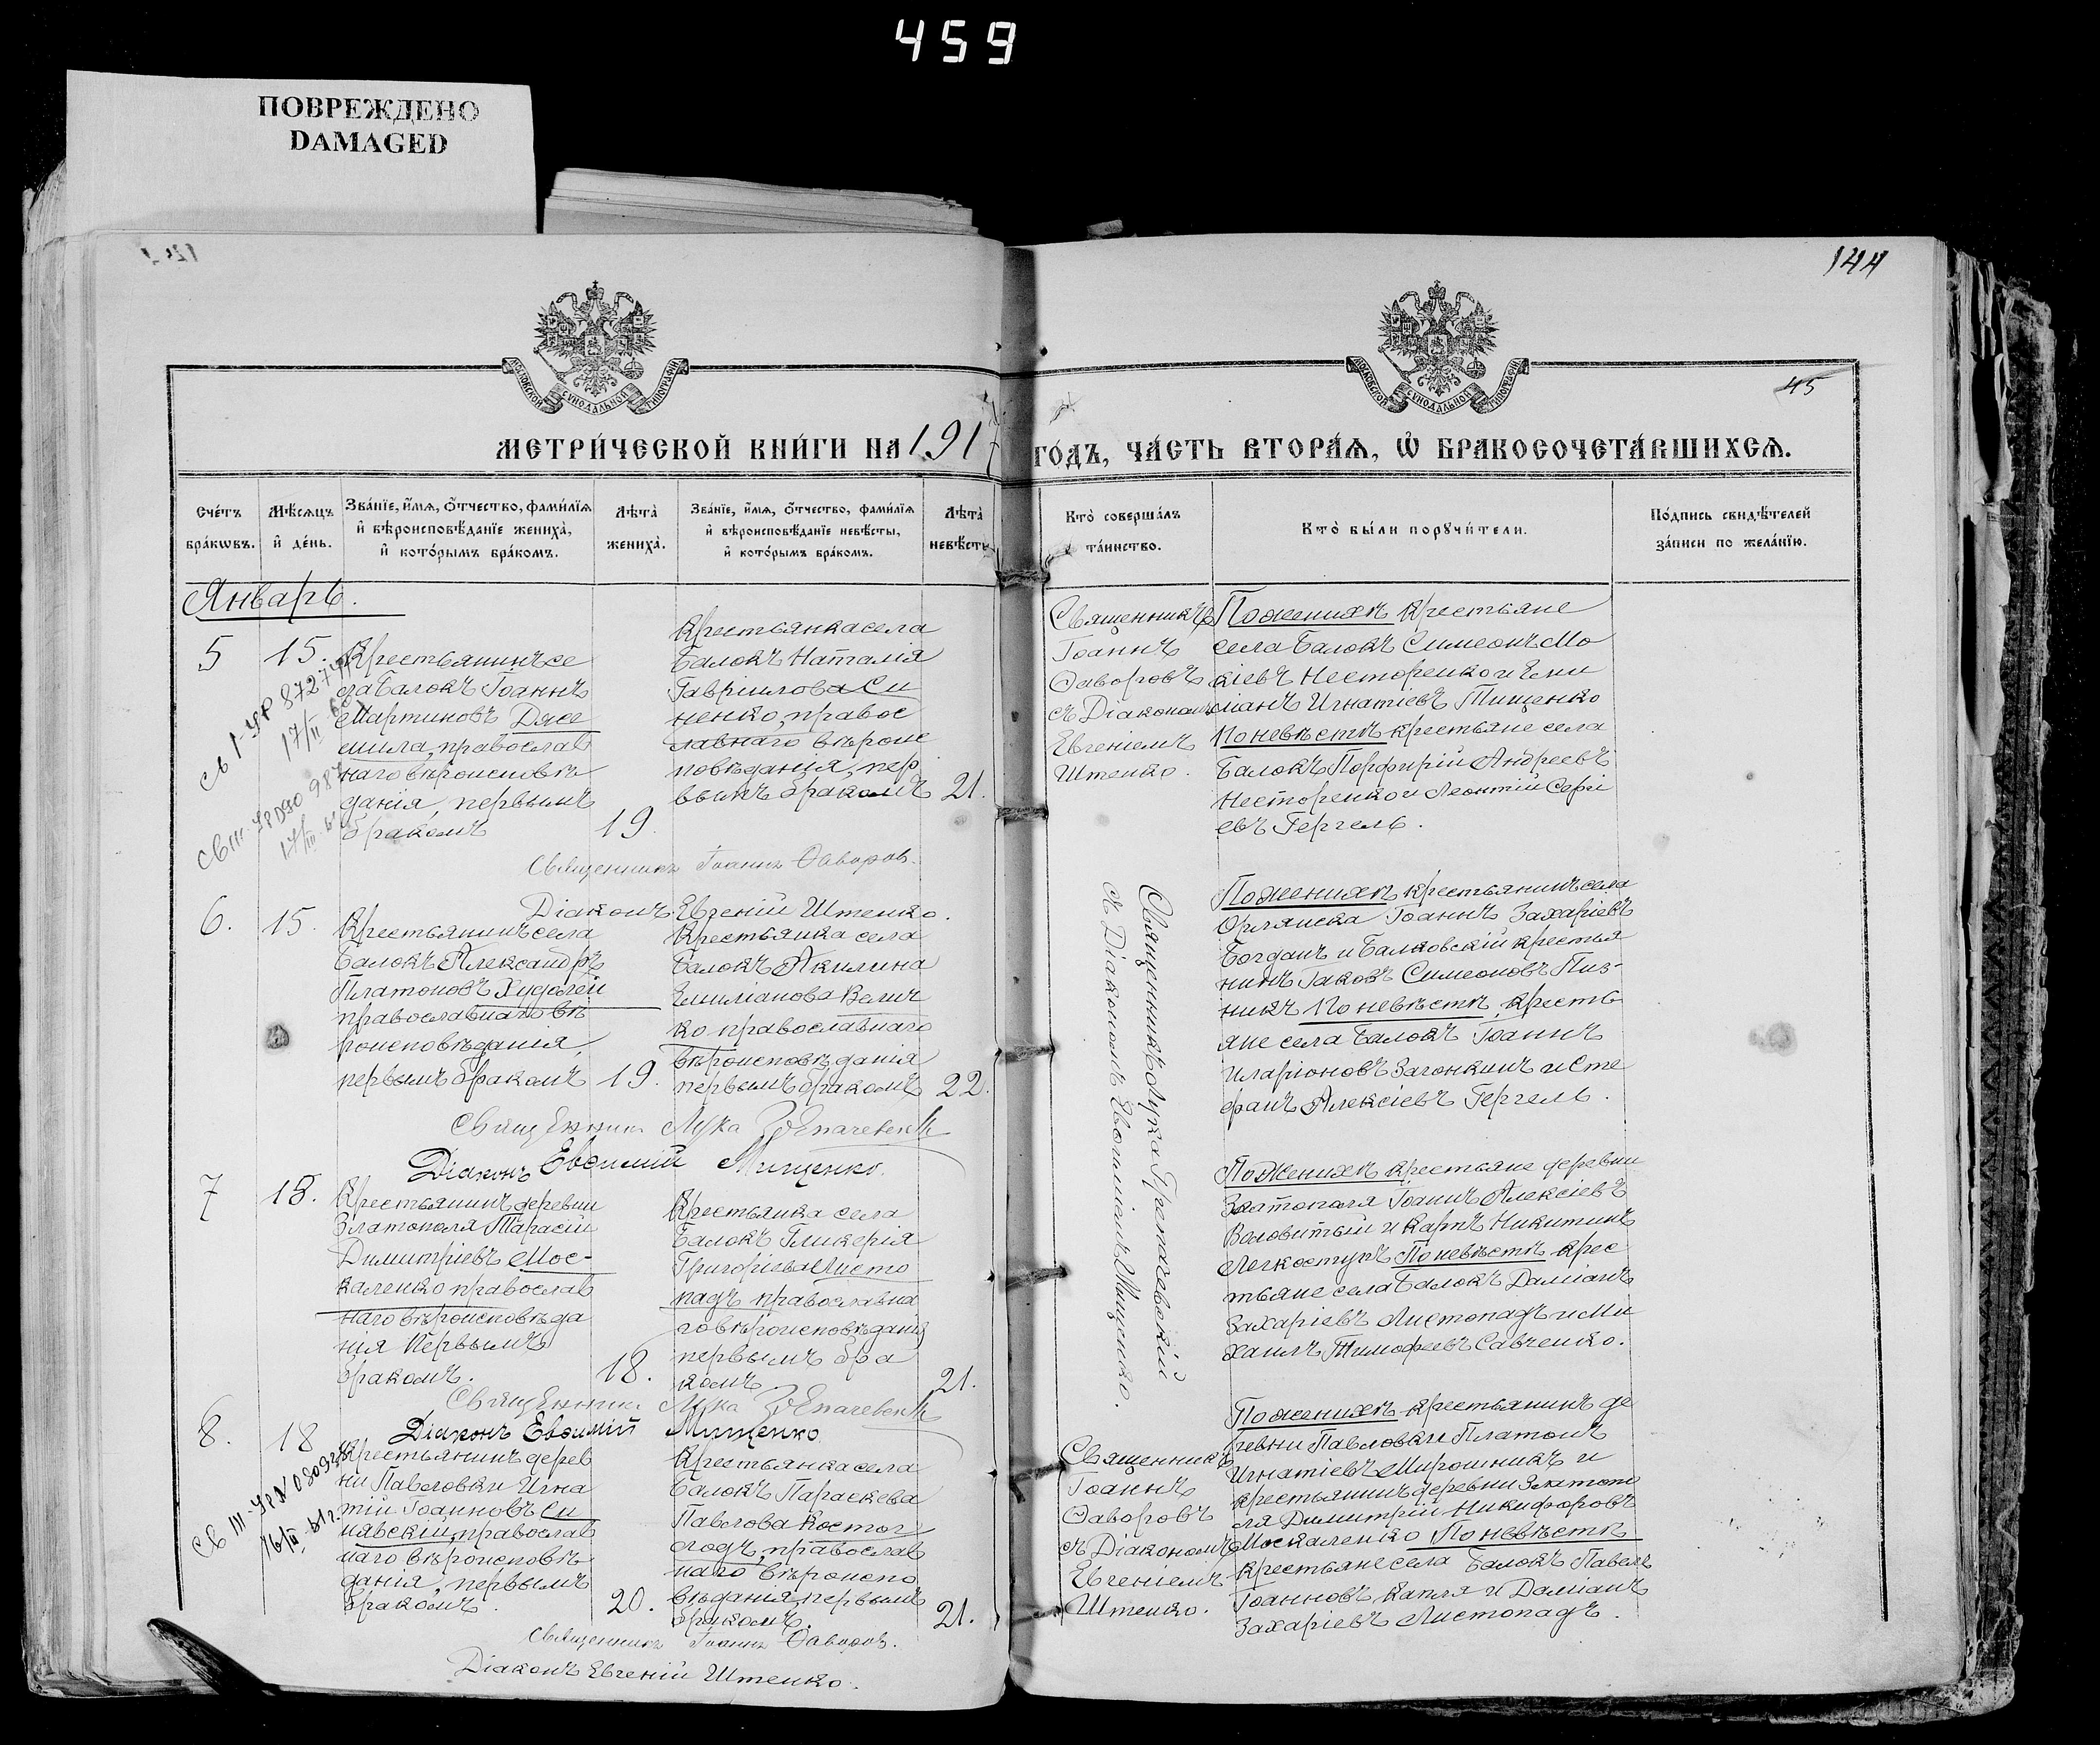 459
ПОВРЕЖДЕНО
DAMAGED
144
МОСКОВСКОЙ СѴНОДАЛЬНОЙ ТИПОГРАФІИ
МОСКОВСКОЙ СѴНОДАЛЬНОЙ ТИПОГРАФІИ
45
МЕТРИ́ЧЕСКОЙ КНИ́ГИ НА 1917 ГО́ДЪ, ЧА́СТЬ ВТОРА́Ѧ, Ѡ БРАКОСОЧЕТА́ВШИХСѦ.
Сче́тъ
бра́кѡвъ.
Мѣ́сѧцъ
и де́нь.
Зва́нїе, и́мѧ, ѻ́тчество, фами́лїѧ
и вѣроисповѣ́данїе жениха̀,
и кото́рымъ бра́комъ.
Лѣта̀
жениха̀.
Зва́нїе, и́мѧ, ѻ́тчество, фами́лїѧ
и вѣроисповѣ́данїе невѣ́сты,
и кото́рымъ бра́комъ.
Лѣта̀
невѣ́сты
Кто̀ соверша́лъ
та́инство.
Кто̀ бы́ли порꙋчи́тели.
По́дпись свидѣ́телей
за́писи по жела́нїю.
Январь.
5
15.
Крестьянинъ се
ла Балокъ Іоаннъ
Мартиновъ Дже
мила, православ
наго вѣроисповѣ
данія, первымъ
бракомъ
19.
Крестьянка села
Балокъ Наталія
Гавріилова Си
ненко, правос
лавнаго вѣроис
повѣданія, пер
вымъ бракомъ
21.
Священникъ
Іоаннъ
Ѳаворовъ
съ Діакономъ
Евгеніемъ
Штенко.
По женихѣ крестьяне
села Балокъ Симеонъ Мо
кіевъ Несторенко и Еми
ліанъ Игнатіевъ Тищенко
По невѣстѣ крестьяне села
Балокъ Порфирій Андреевъ
Несторенко и Леонтій Сергі
евъ Гергель.
Священникъ Іоаннъ Ѳаворовъ.
Діаконъ Евгеній Штенко.
6.
15.
Крестьянинъ села
Балокъ Александръ
Платоновъ Худолей
православнаго вѣ
роисповѣданія,
первымъ бракомъ
19.
Крестьянка села
Балокъ Акилина
Емиліанова Велич
ко православнаго
вѣроисповѣданія
первымъ бракомъ
22.
По женихѣ крестьянинъ села
Орлянска Іоаннъ Захаріевъ
Богданъ и Балковскій крестья
нинъ Іаковъ Симеоновъ Пиз-
никъ По невѣстѣ, кресть
яне села Балокъ Іоаннъ
Иларіоновъ Загонкинъ и Сте
фанъ Алексіевъ Гергель.
Священникъ Лука
Діаконъ Евѳимій Мищенко.
Священникъ Лука
съ Діакономъ Евѳиміемъ Мищенко.
7
18.
Крестьянинъ деревни
Златополя Тарасій
Димитріевъ Мос-
каленко православ
наго вѣроисповѣда
нія первымъ
бракомъ.
18.
Крестьянка села
Балокъ Гликерія
Григоріева Листо
падъ православна
го вѣроисповѣданія
первымъ бра
комъ
21.
По женихѣ крестьяне деревни
Златополя Іоаннъ Алексіевъ
Воловитый и Карпъ Никитинъ
Легкоступъ По невѣстѣ крес
тьяне села Балокъ Даміанъ
Захаріевъ Листопадъ и Ми
хаилъ Тимофеевъ Савченко.
Священникъ Лука
Діаконъ Евѳимій Мищенко
8.
18
Крестьянинъ дерев
ни Павловки Игна
тій Іоанновъ Си
нявскій, православ
наго вѣроисповѣ
данія, первымъ
бракомъ.
20.
Крестьянка села
Балокъ Параскева
Павлова Костог
лодъ, православ
наго вѣроиспо
вѣданія, первымъ
бракомъ.
21.
Священникъ
Іоаннъ
Ѳаворовъ
съ Діакономъ
Евгеніемъ
Штенко.
По женихѣ крестьянинъ де
ревни Павловки Платонъ
Игнатіевъ Мирошникъ и
крестьянинъ деревни Златопо
ля Димитрій Никифоровъ
Москаленко По невѣстѣ
крестьяне села Балокъ Павелъ
Іоанновъ Капля и Даміанъ
Захаріевъ Листопадъ.
Священникъ Іоаннъ Ѳаворовъ.
Діаконъ Евгеній Штенко.